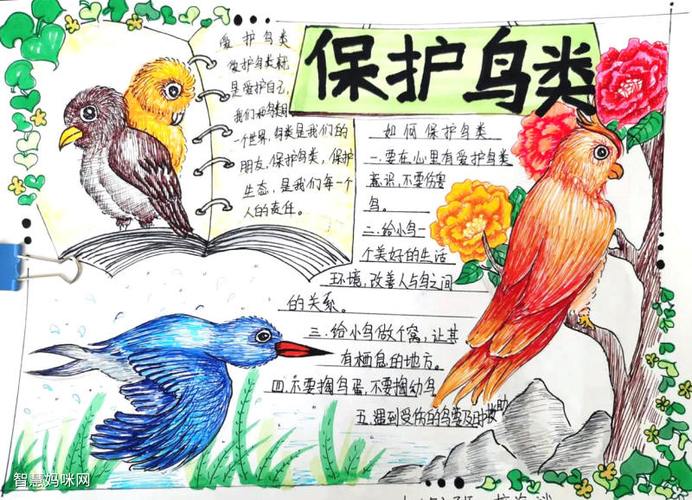 保护鸟类
爱护鸟类
爱护鸟类就
是爱护自己,
我们和鸟类同
一个世界,鸟类是我们的
朋友,保护鸟类,保护
生态,是我们每一个
人的责任。
如何保护鸟类
一.要在心里有爱护鸟类
意识,不要伤害
鸟。
二.给小鸟一
个美好的生活
环境,改善人与鸟之间
的关系。
三.给小鸟做个窝,让其
有栖息的地方。
四.不要掏鸟蛋,不要掏幼鸟
五.遇到受伤的鸟要及时救助
智慧妈咪网